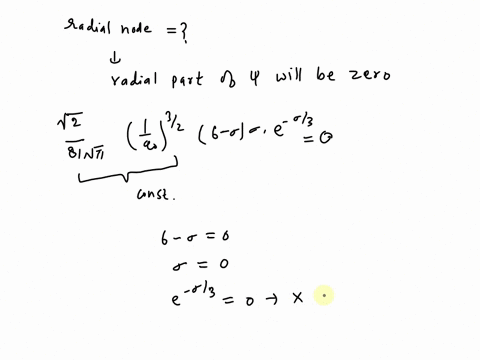 radial node = ?
↓
radial part of ψ will be zero
√2/81√π (1/a₀)^3/2 (6-σ)σ · e^-σ/3 = 0
const.
6 - σ = 0
σ = 0
e^-σ/3 = 0 → ×